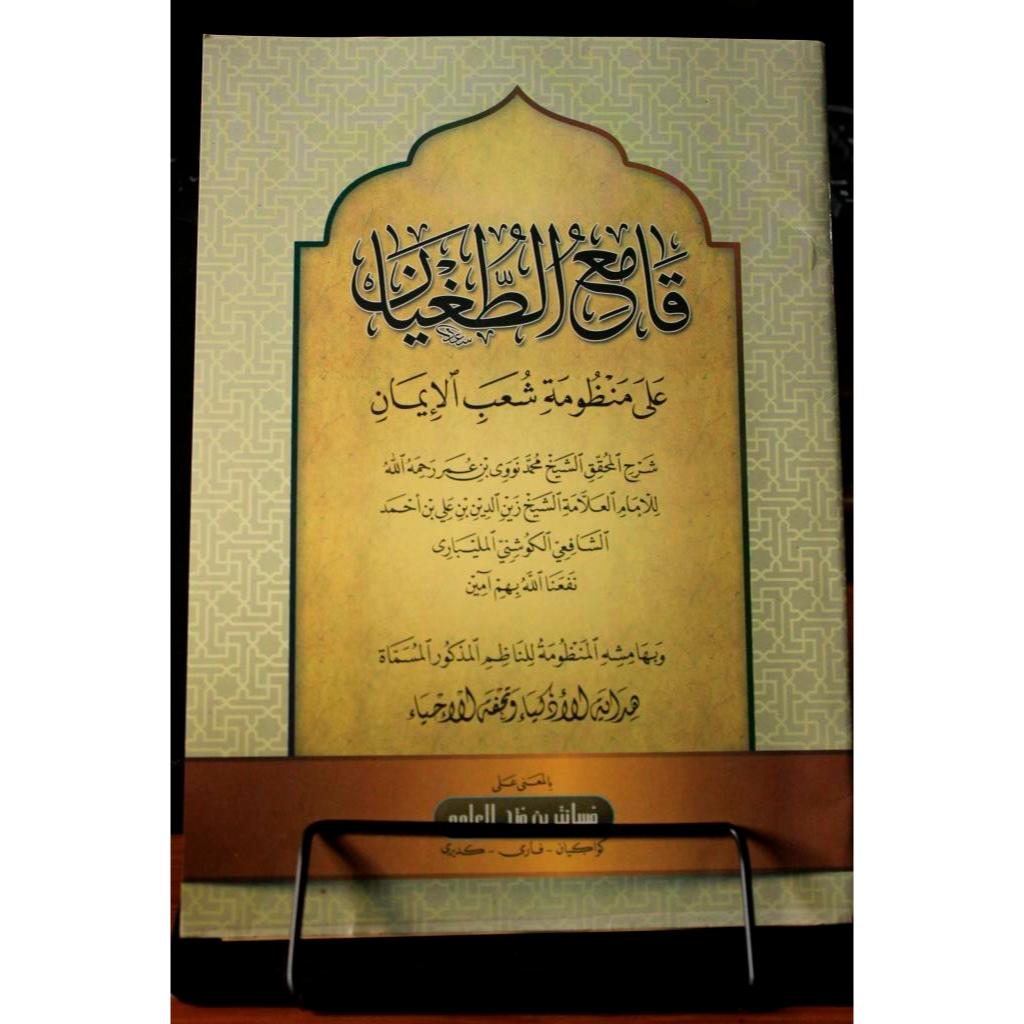 قامع الطغيان
سعدي
على منظومة شعب الإيمان
شرح المحقق الشيخ محمد نووى بن عمر رحمه الله
للإمام العلامة الشيخ زين الدين بن علي بن أحمد
الشافعي الكوشني المليبارى
نفعنا الله بهم آمين
وبهامشه المنظومة للناظم المذكور المسماة
هداية الأذكياء وتحفة الإحياء
بالمعنى على
فسانترين فتح العلوم
كواكيان - فارى - كديرى